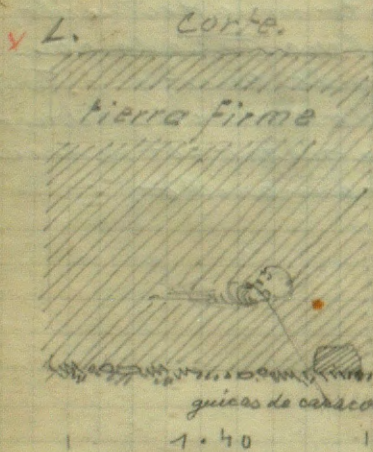 L. corte.
tierra firme
guicas de caraco
1.40